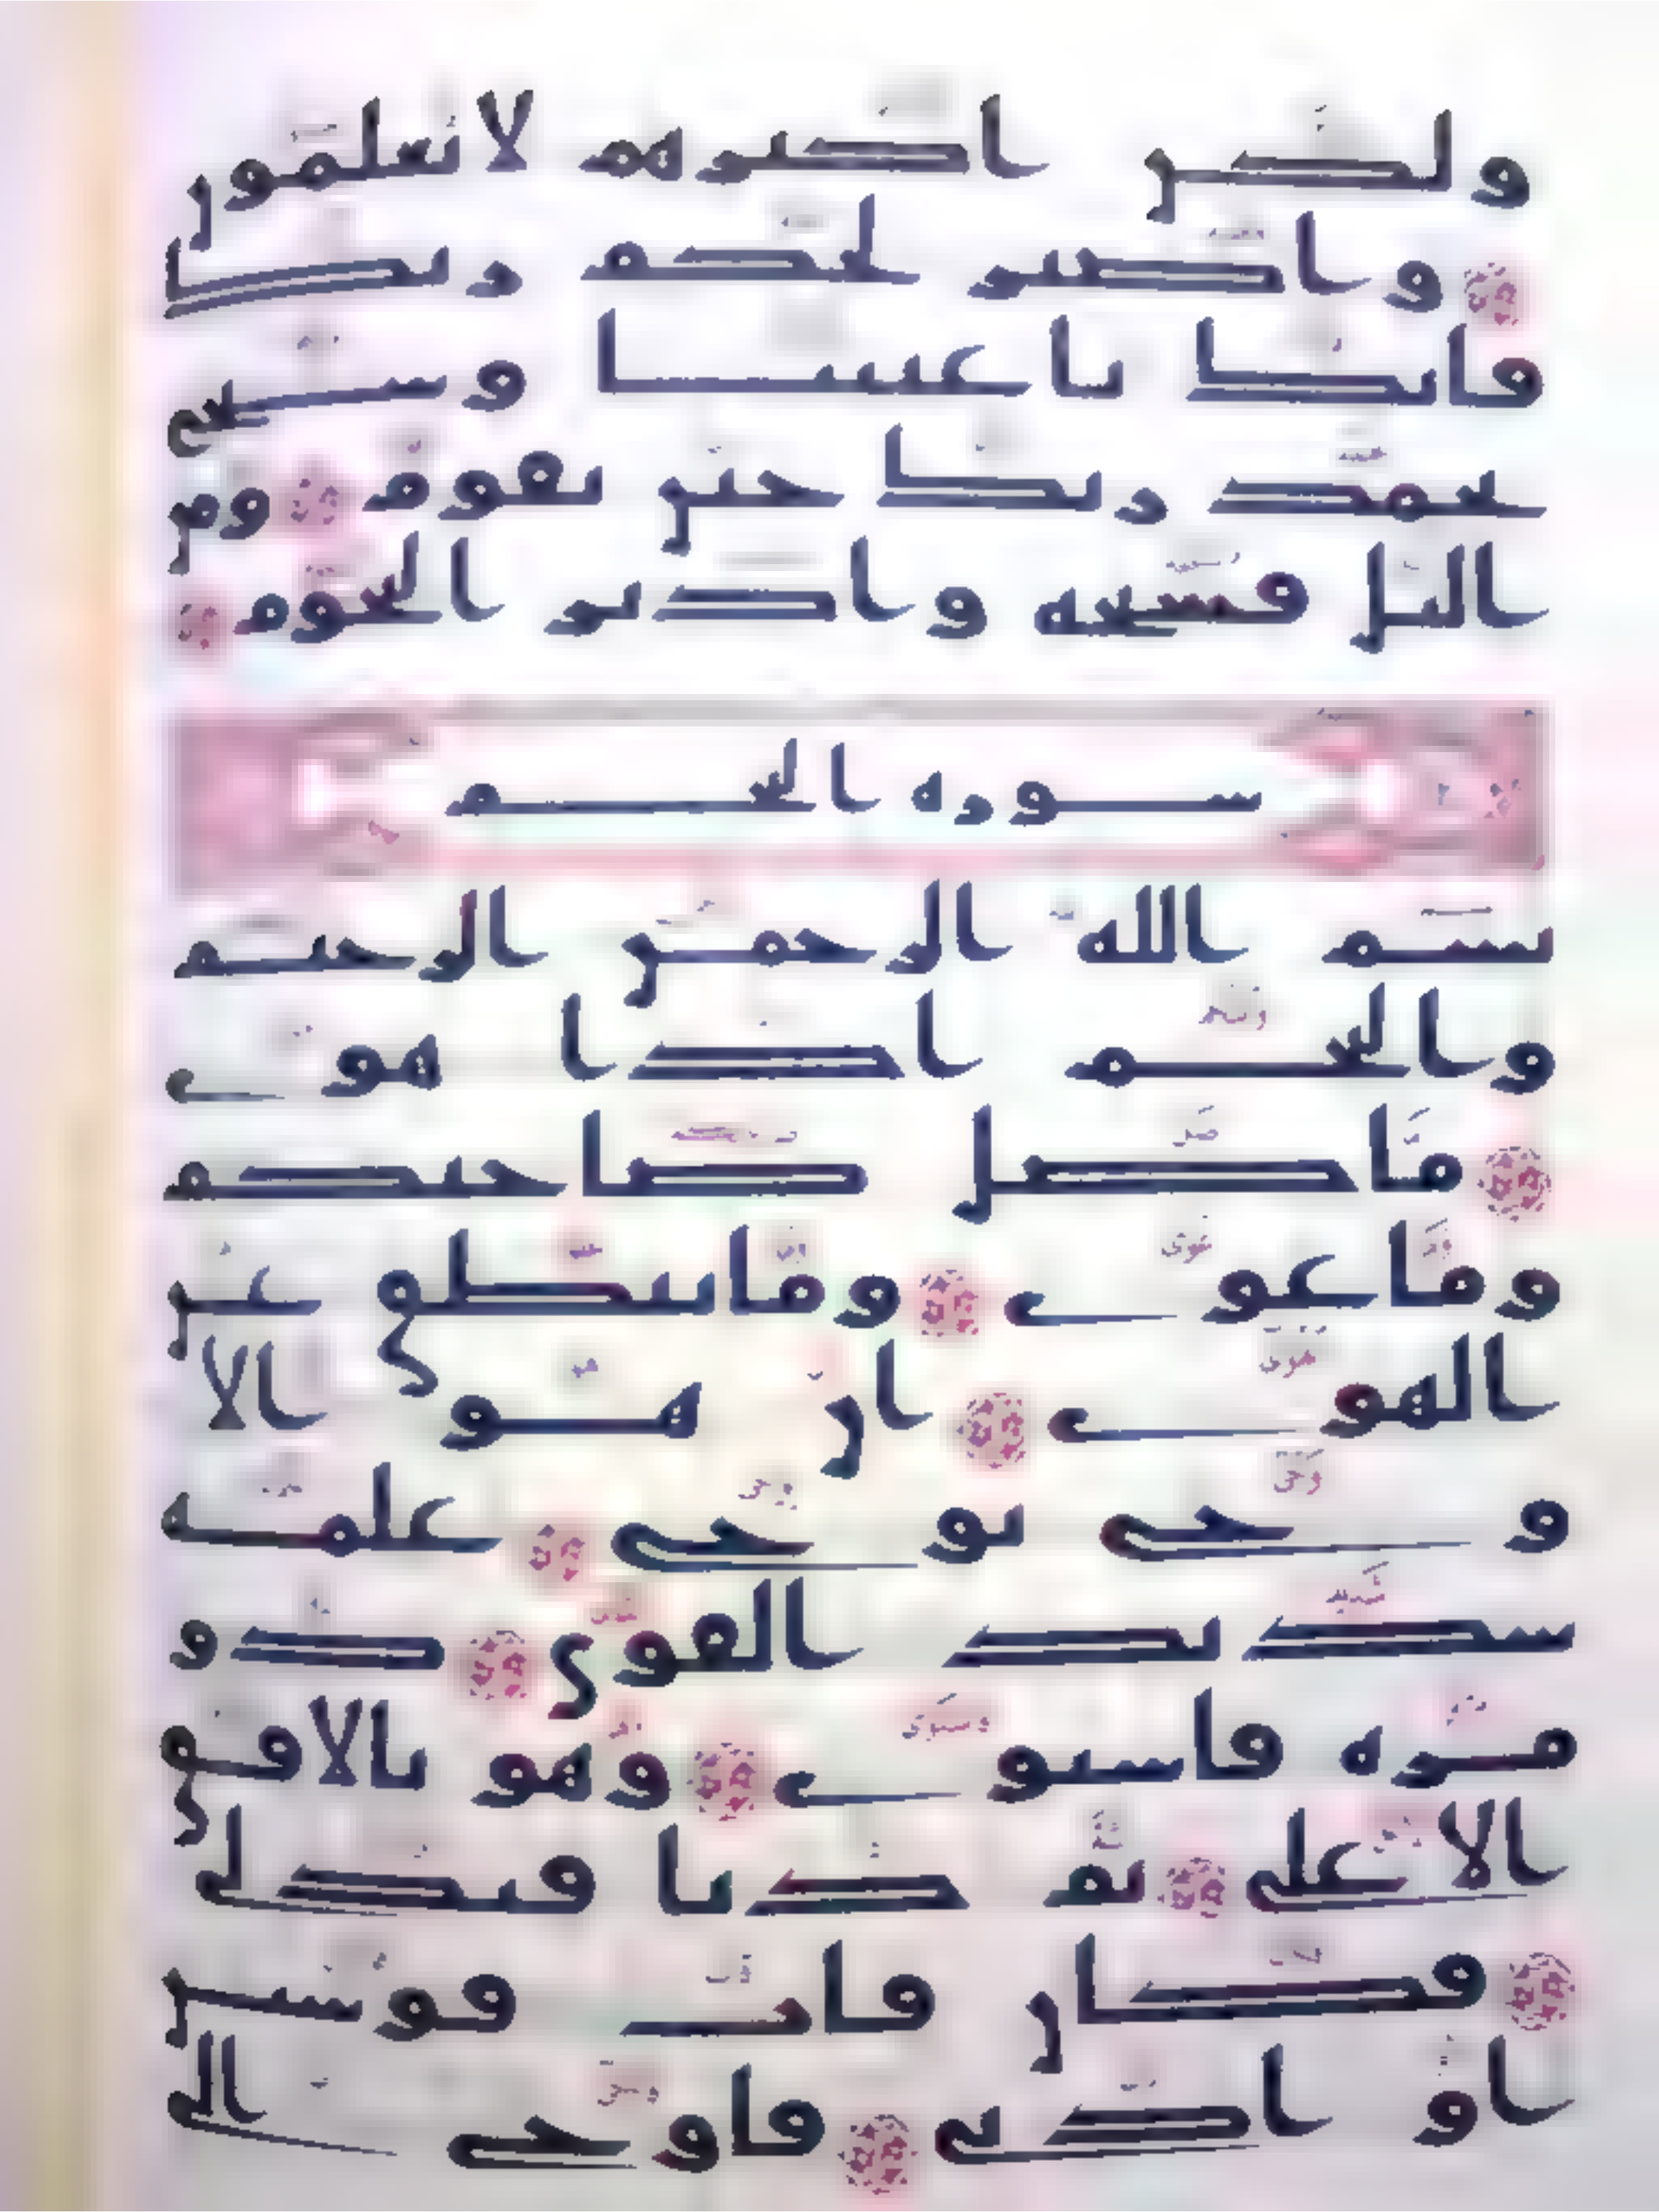 ولكن اكثرهم لا تعلمون
واصبر لحكم ربك
فانك باعيننا وسبح
بحمد ربك حين تقوم ومن
اليل فسبحه وادبر النجوم
سورة النجم
بسم الله الرحمن الرحيم
والنجم اذا هوى
ما ضل صاحبكم
وما غوى وما ينطق عن
الهوى ان هو الا
وحي يوحى علمه
شديد القوى ذو
مرة فاستوى وهو بالافق
الاعلى ثم دنا فتدلى
فكان قاب قوسين
او ادنى فاوحى الى